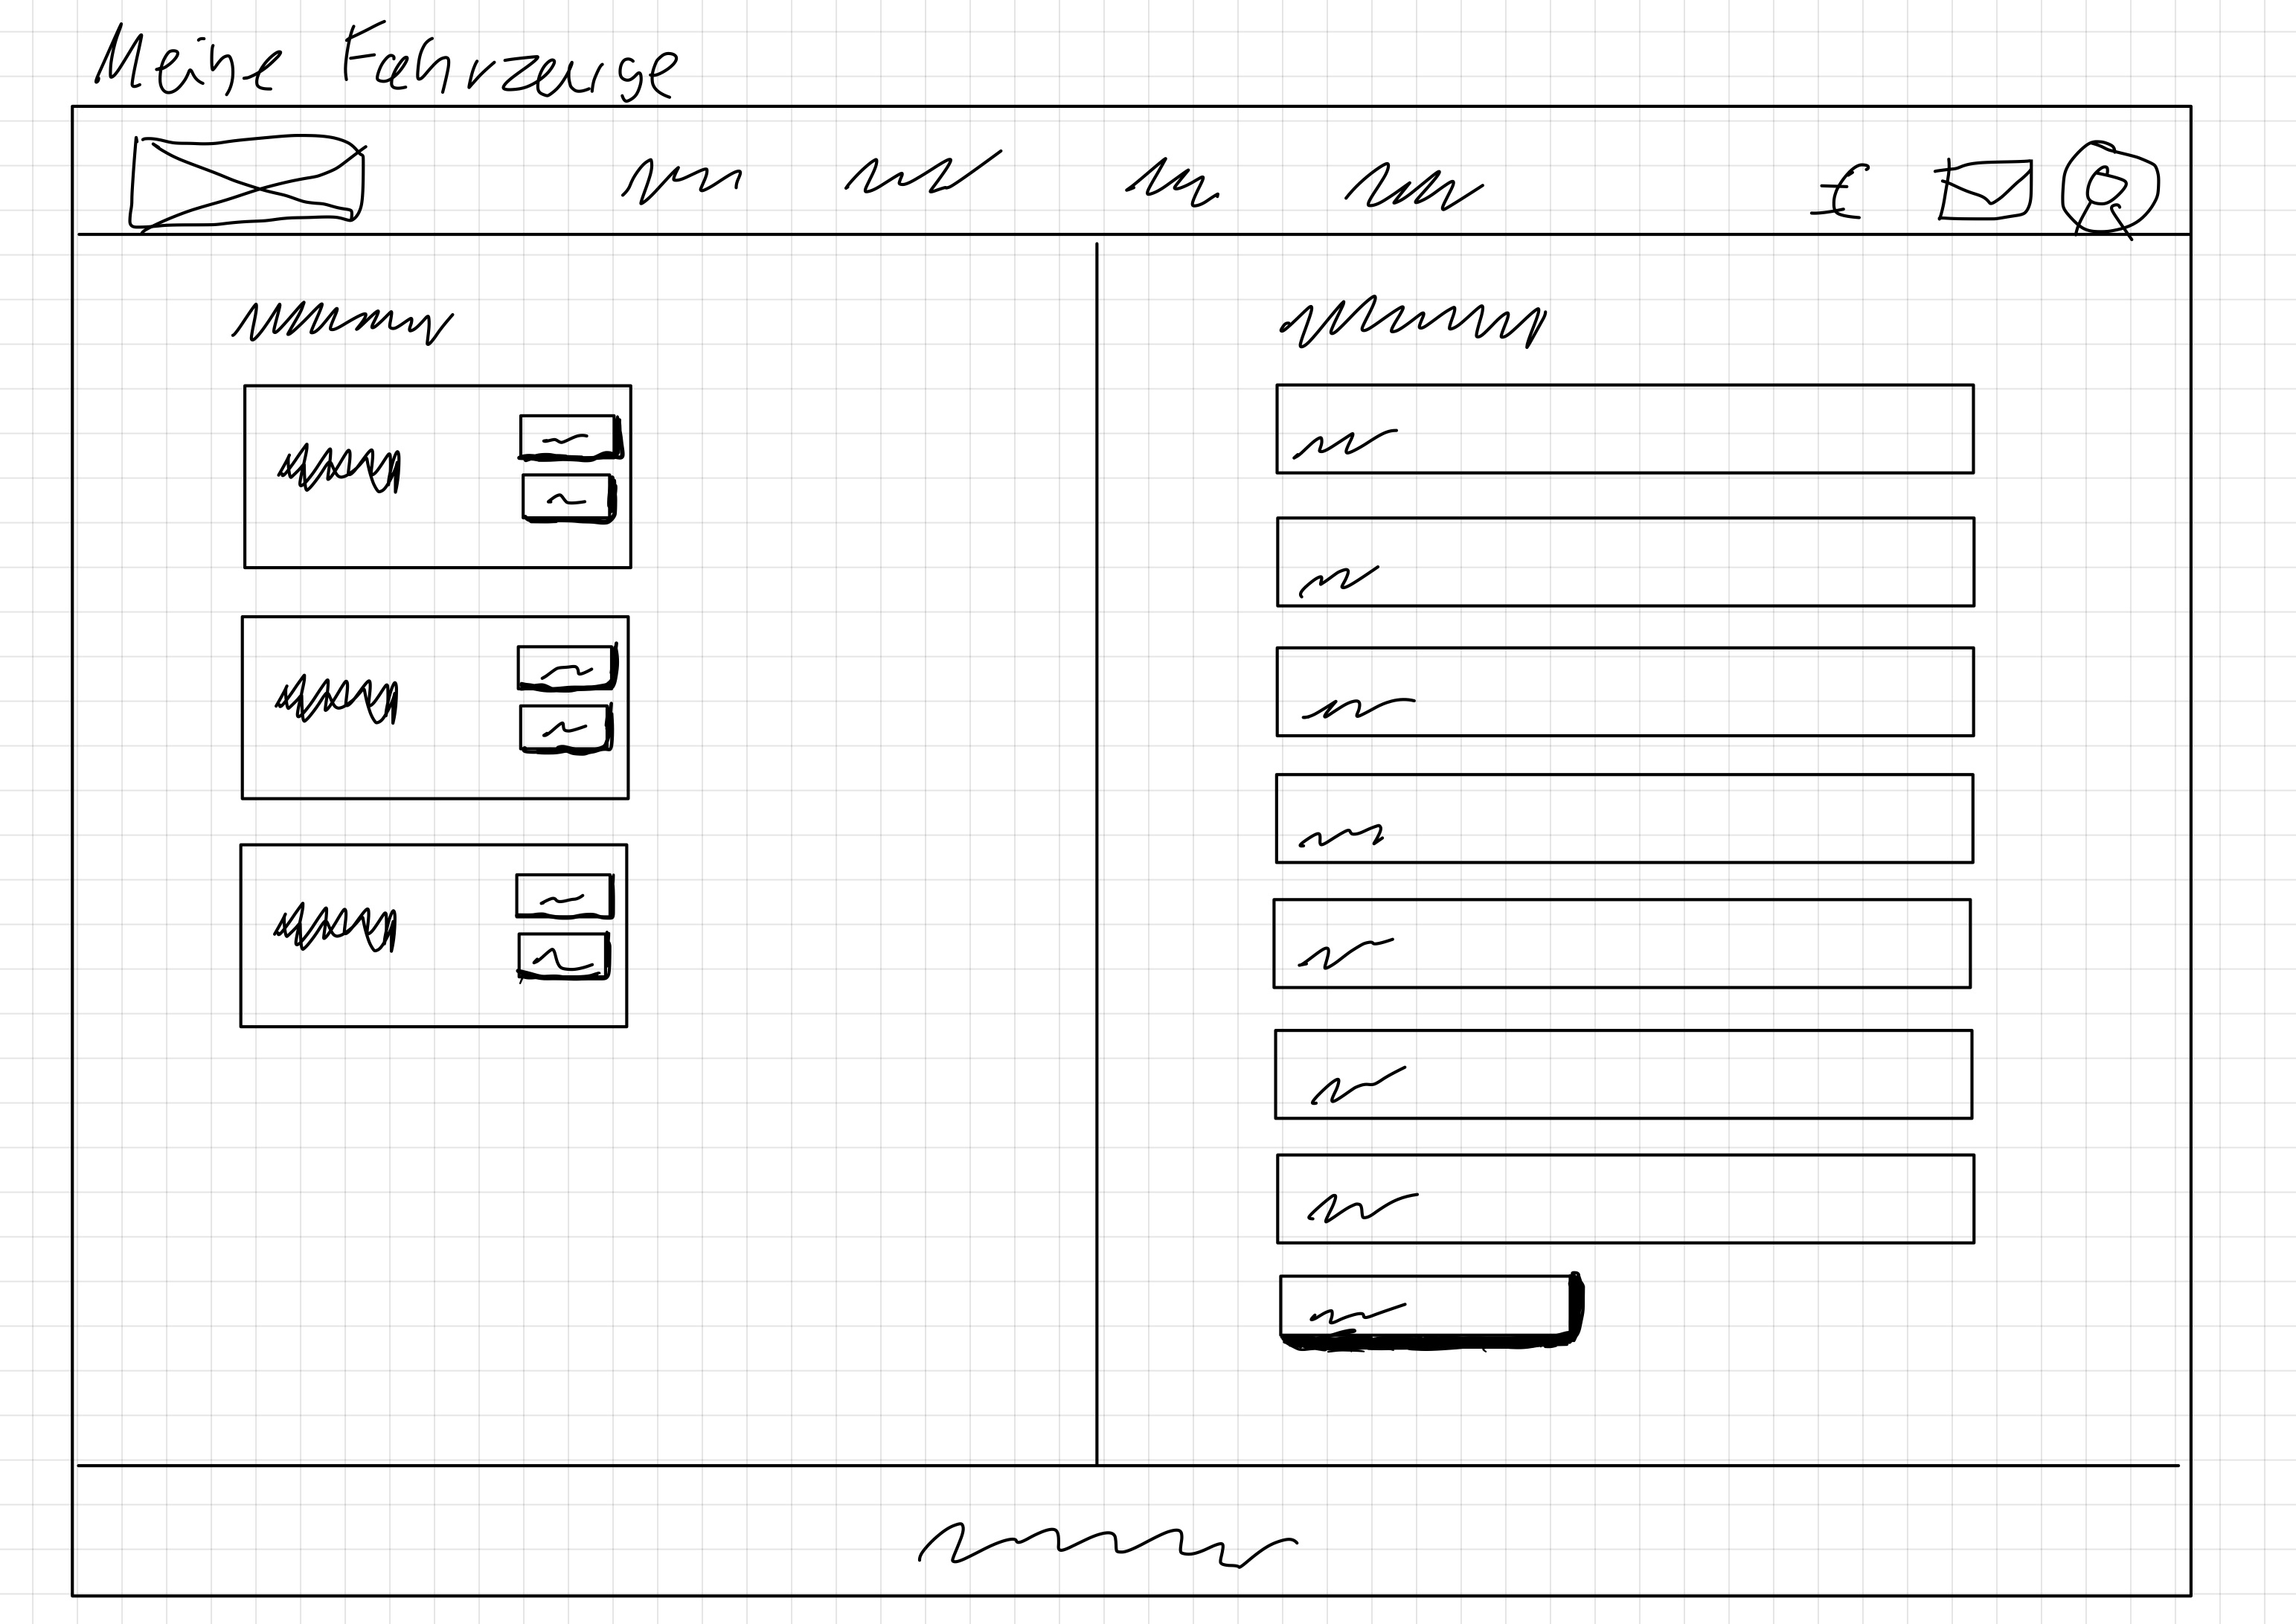 Meine Fahrzeuge
€